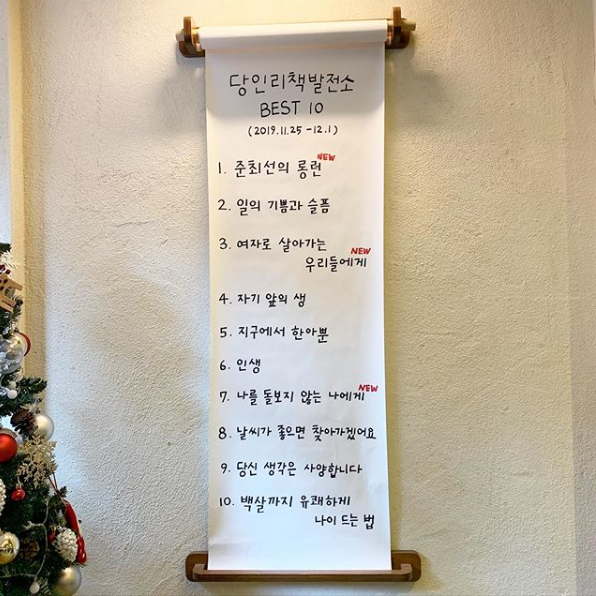 당인리책발전소
BEST 10
(2019.11.25 - 12.1)
1. 준최선의 롱런 NEW
2. 일의 기쁨과 슬픔
3. 여자로 살아가는
우리들에게 NEW
4. 자기 앞의 생
5. 지구에서 한아뿐
6. 인생
7. 나를 돌보지 않는 나에게 NEW
8. 날씨가 좋으면 찾아가겠어요
9. 당신 생각은 사양합니다
10. 백살까지 유쾌하게
나이 드는 법